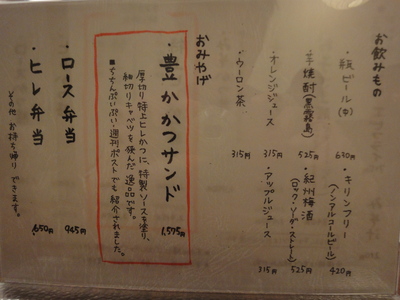 お飲みもの
・瓶ビール(中) 630円
・キリンフリー
(ノンアルコールビール) 420円
・芋焼酎(黒霧島) 525円
・紀州梅酒
(ロック・ソーダ・ストレート) 525円
・オレンジジュース 315円
・アップルジュース 315円
・ウーロン茶 315円
おみやげ
・豊かかつサンド 1,575円
厚切り特上ヒレかつに、特製ソースを塗り、
細切りキャベツを挟んだ逸品です。
■ちちんぷいぷい・週刊ポストでも紹介されました。
・ロース弁当 945円
・ヒレ弁当 1,650円
その他 お持ち帰りできます。